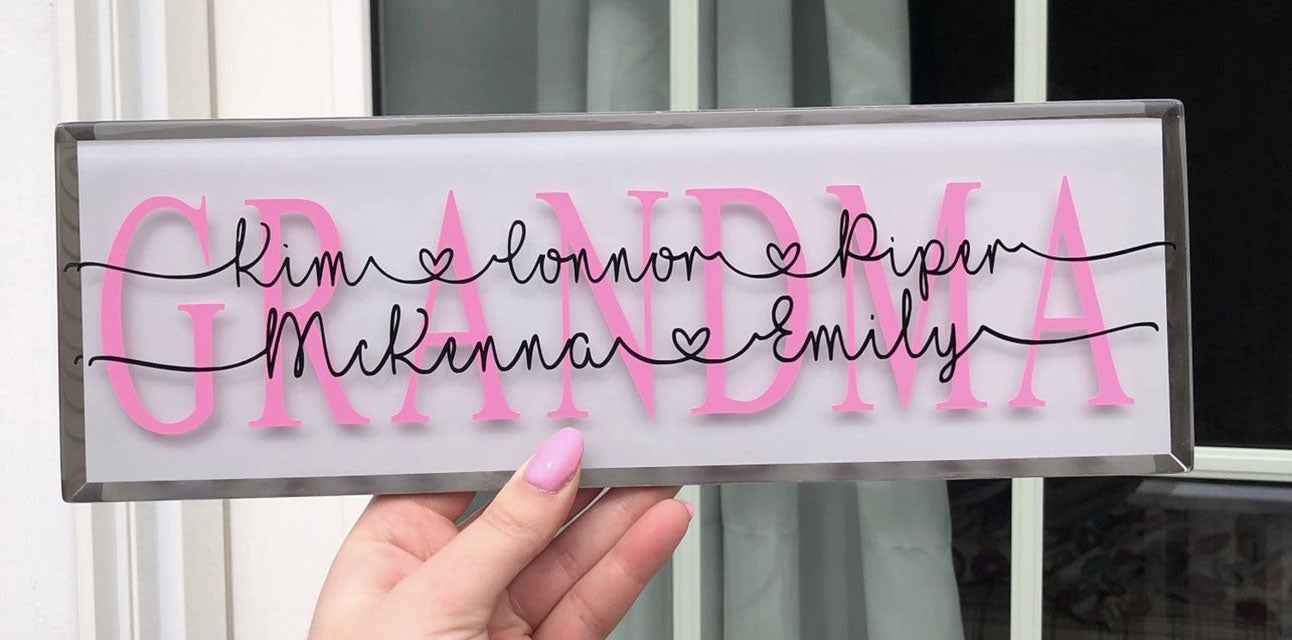 GRANDMA
Kim Connor Piper
McKenna Emily